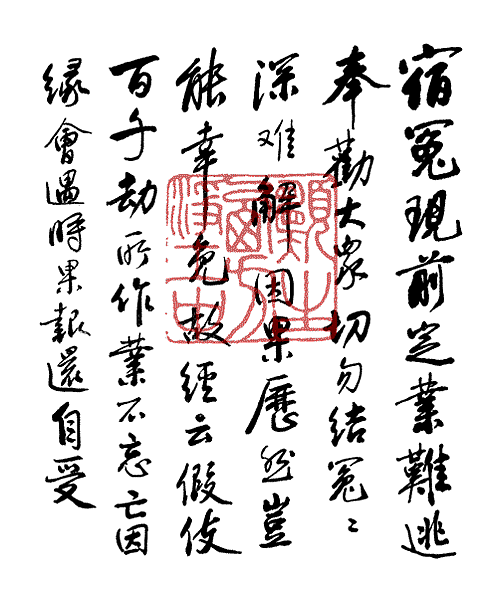 宿冤現前定業難逃
奉勸大眾切勿結冤〻
深难解因果歷然豈
能幸免故經云假使
百千劫所作業不忘亡因
緣會遇時果報還自受
願生
西方
淨土中